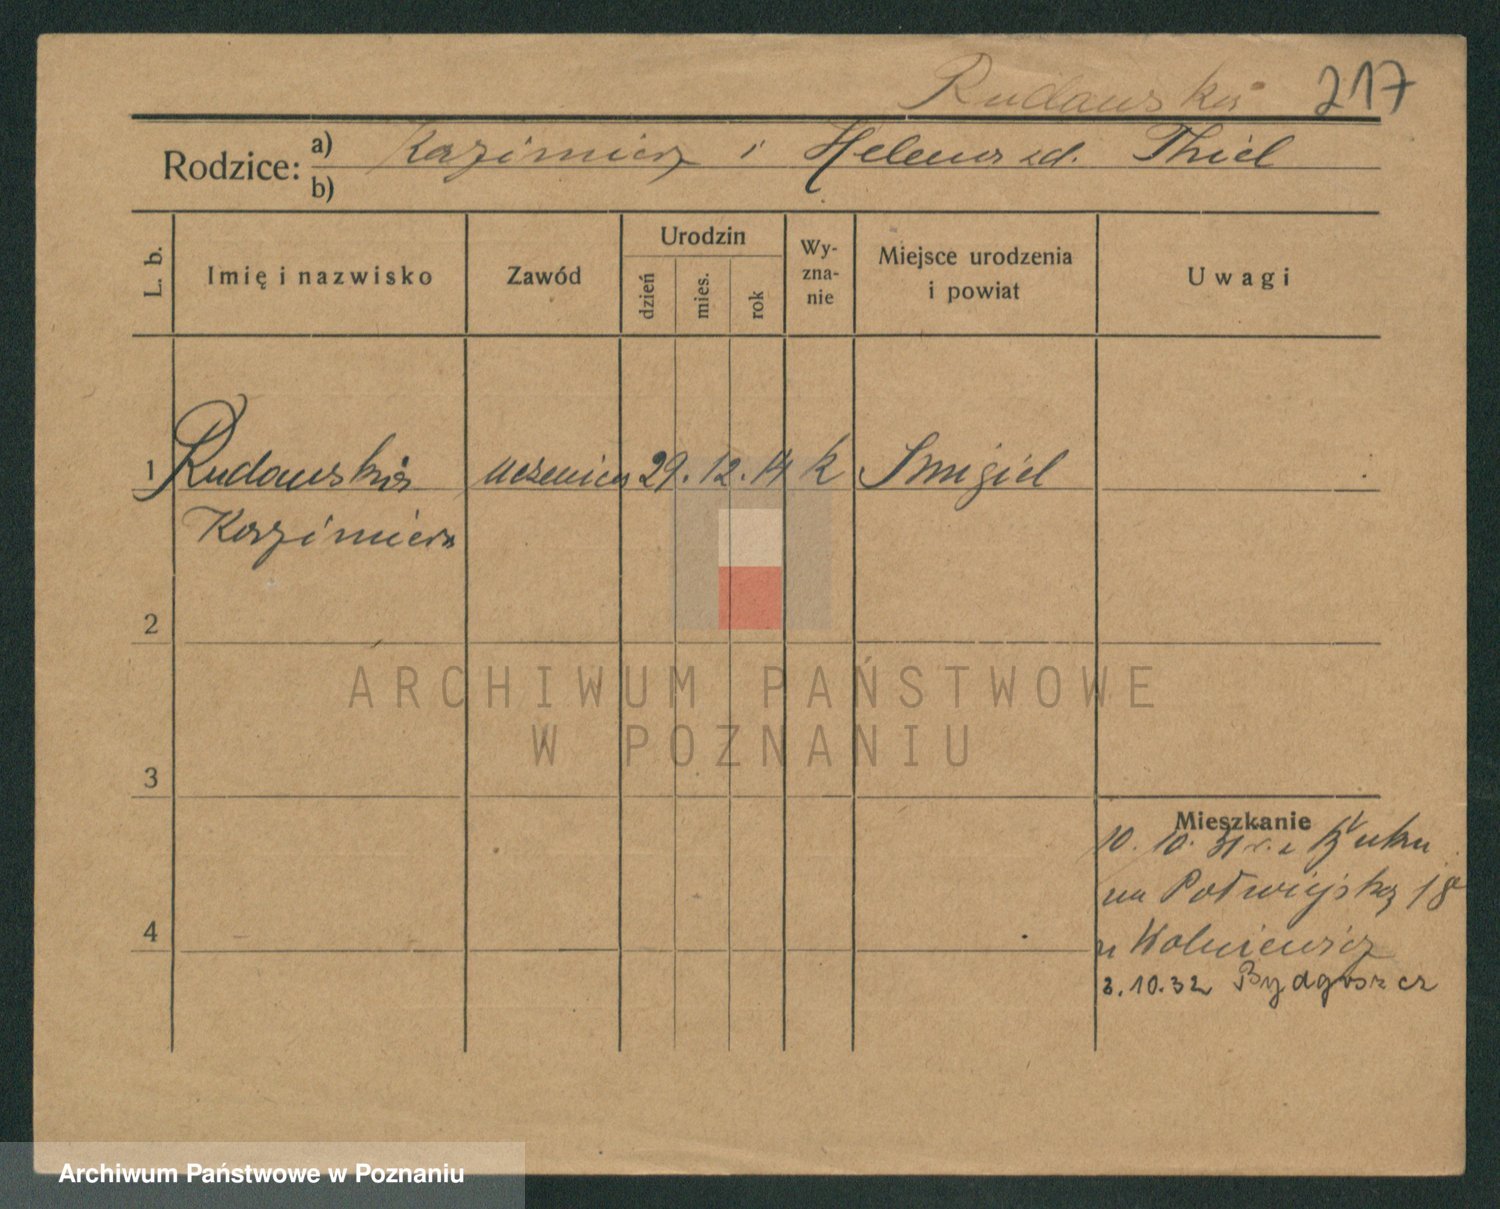 Rudawska 217
Rodzice: a) Kazimierz i Helena zd. Thiel
b)
L. b. Imię i nazwisko Zawód Urodzin dzień mies. rok Wy-zna-nie Miejsce urodzenia i powiat Uwagi
1 Rudawska uczenica 29. 12. 14 k Śmigiel
Kazimiera
2
ARCHIWUM PAŃSTWOWE
W POZNANIU
3
Mieszkanie
10. 10. 31 r. z Buku
na Półwiejską 18
u Wolniewicz
3.10.32 Bydgoszcz
4
Archiwum Państwowe w Poznaniu